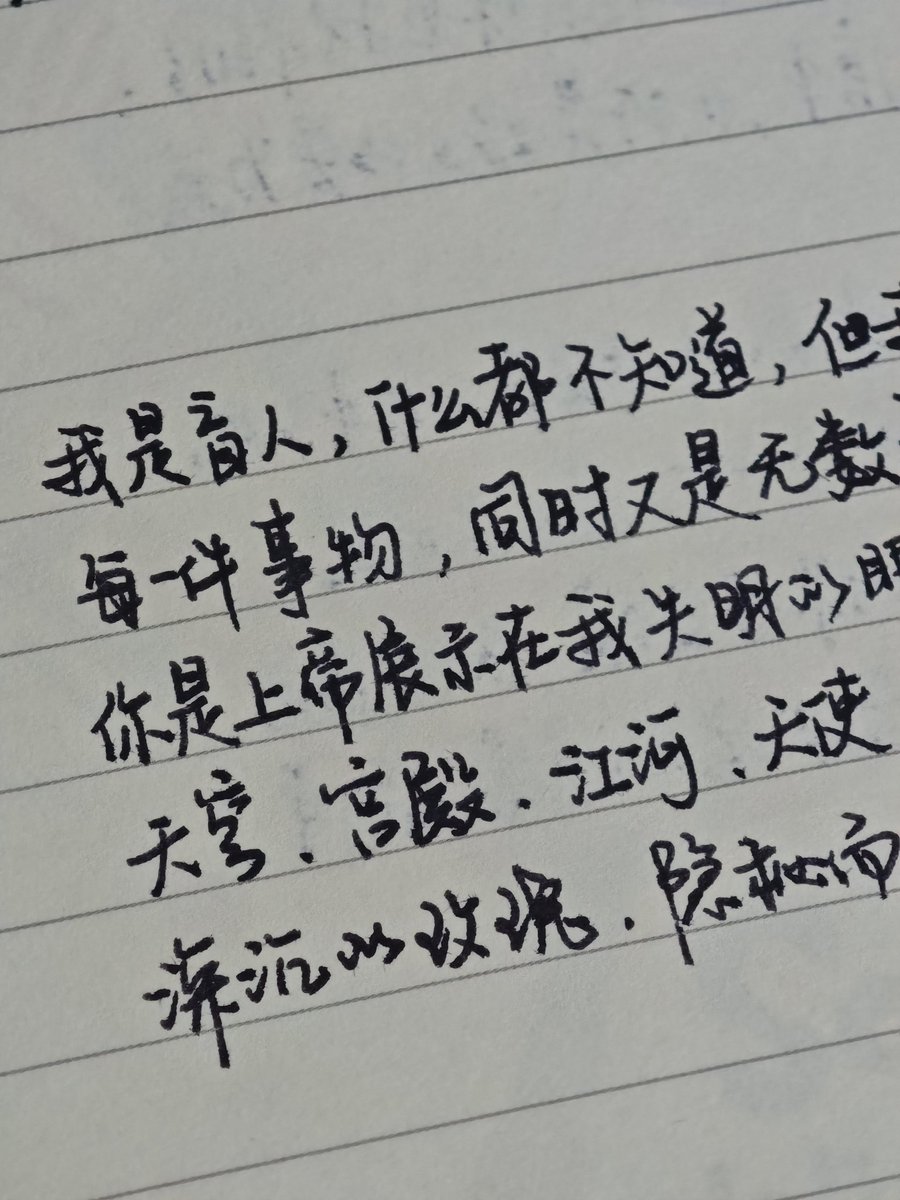 我是盲人，什么都不知道，但
每一件事物，同时又是无数
你是上帝展示在我失明的
天穹、宫殿、江河、天使
深沉的玫瑰、隐秘而